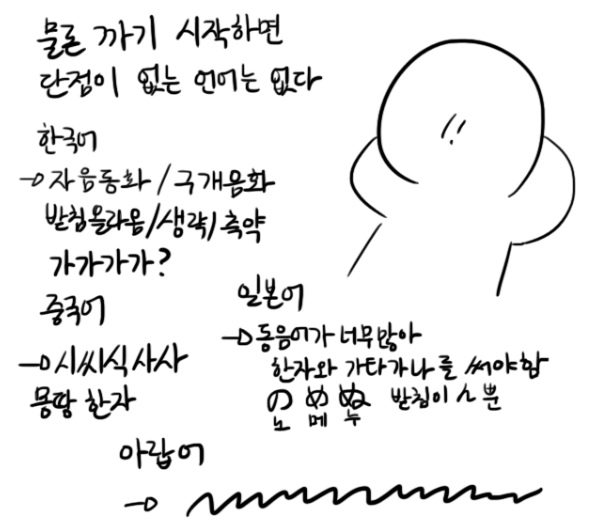 물론 까기 시작하면
단점이 없는 언어는 없다
!!
한국어
→자음동화/구개음화
받침올라옴/생략/축약
가가가가?
중국어
→시씨식사사
몽땅 한자
일본어
→동음어가 너무많아
한자와 가타가나를 써야함
の め ぬ 받침이 ㄴ뿐
노 메 누
아랍어
→